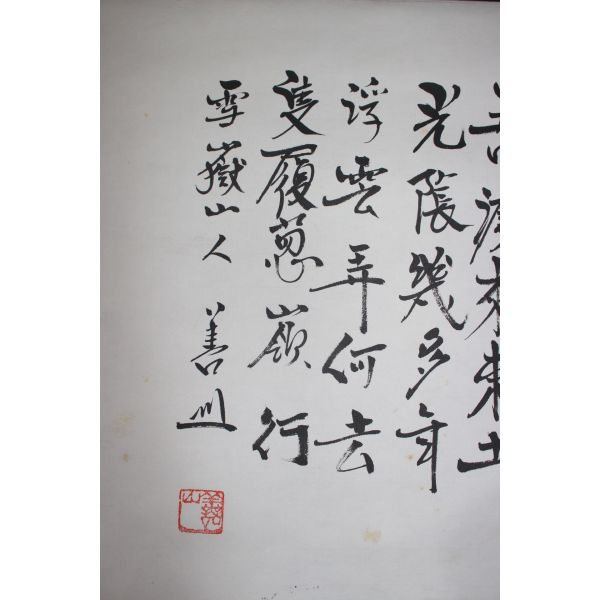 來東土
光陰幾多年
浮雲弄何去
隻履葱嶺行
雪嶽山人 善